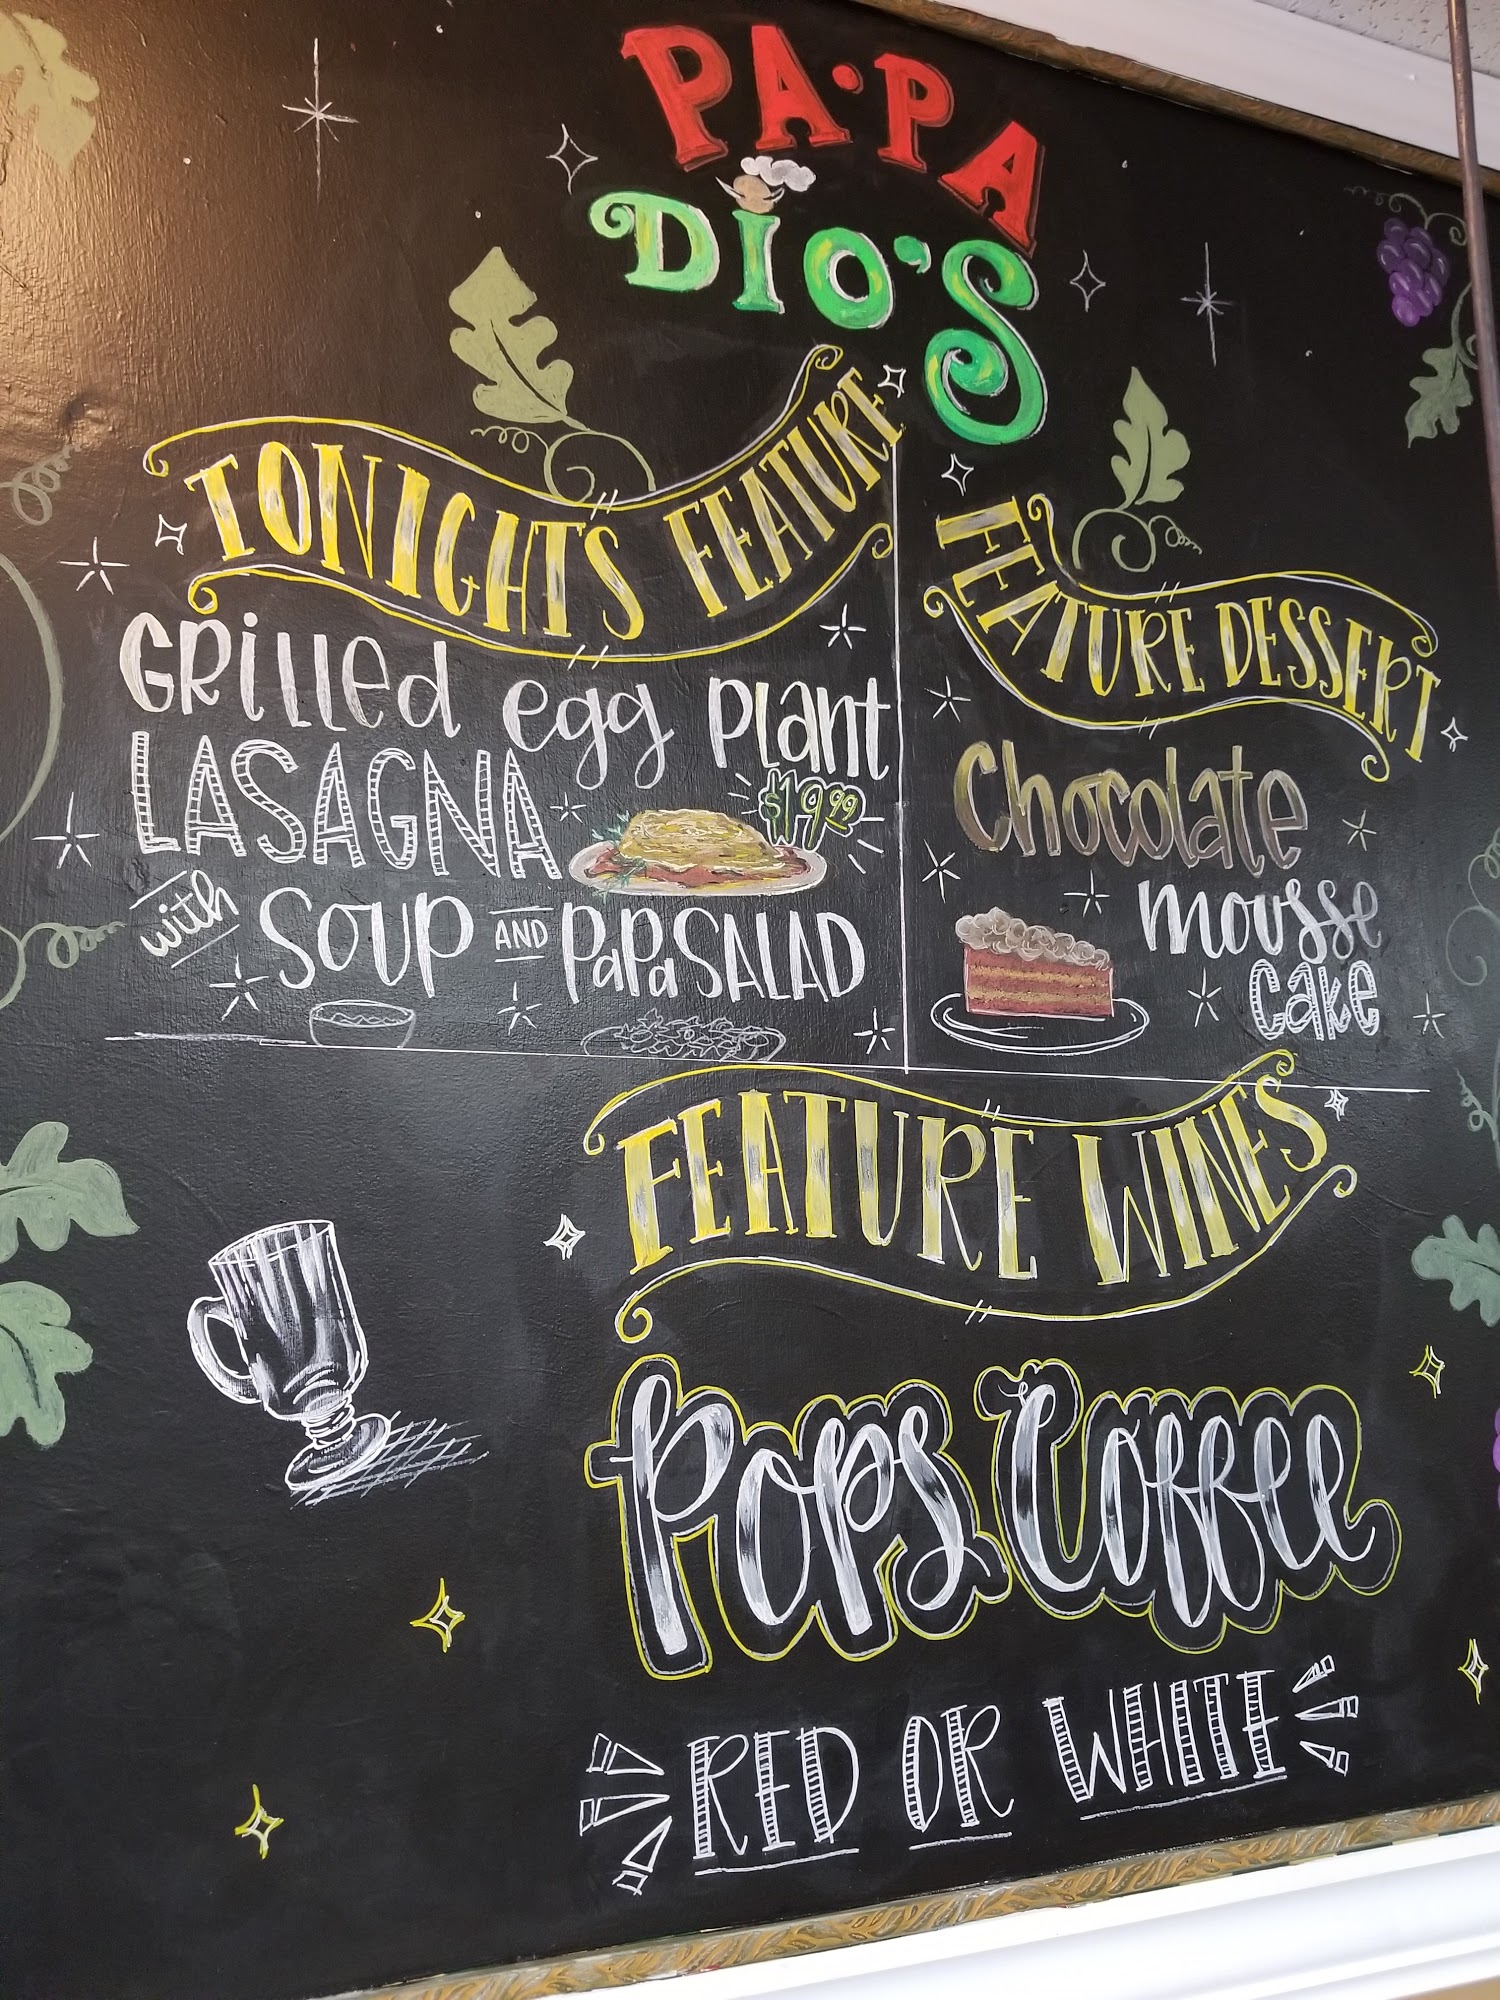 PA·PA
DIO'S
TONIGHTS FEATURE
GRilled egg plant
LASAGNA
$19.99
with SOUP AND PaPa SALAD
FEATURE DESSERT
Chocolate
mousse
cake
FEATURE WINES
Pops Coffee
RED OR WHITE